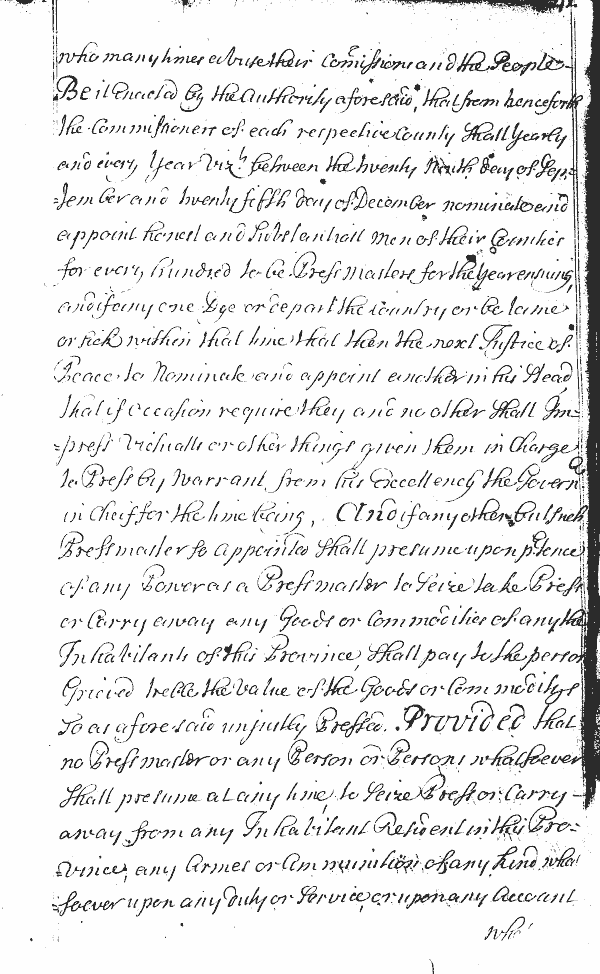 who many times abuse their Comissions and the People
Be it Enacted by the Authority aforesaid, that from henceforth
the Commissioners of each respective County Shall Yearly
and every Year Vizt between the twenty Ninth day of Sep-
=tember and twenty fifth day of December nominate and
appoint honest and Substantiall Men of their Counties
for every hundred to be Press Masters for the Year ensuing,
and if any one Dye or depart the Country or be lame
or sick within that time that then the next Justice of
Peace to Nominate and appoint another in his Stead,
that if Occasion require they and no other Shall Im-
=press Victualls or other things given them in Charge
to Press by Warrant from his Excellency the Govern
in Cheif for the time being, And if any other but such
Pressmaster so Appointed Shall presume upon ptence
of any Power as a Pressmaster to Seize take Press
or Carry away any Goods or Commodities of any the
Inhabitants of this Province, Shall pay to the person
Grieved treble the Value of the Goods or Commoditys
so as aforesaid unjustly Pressed. Provided that
no Pressmaster or any Person or Persons whatsoever
Shall presume at any time to Seize Press or Carry
away from any Inhabitant Resident in this Pro-
=vince, any Armes or Ammunition of any kind what
=soever upon any duty or Service, or upon any Account
what